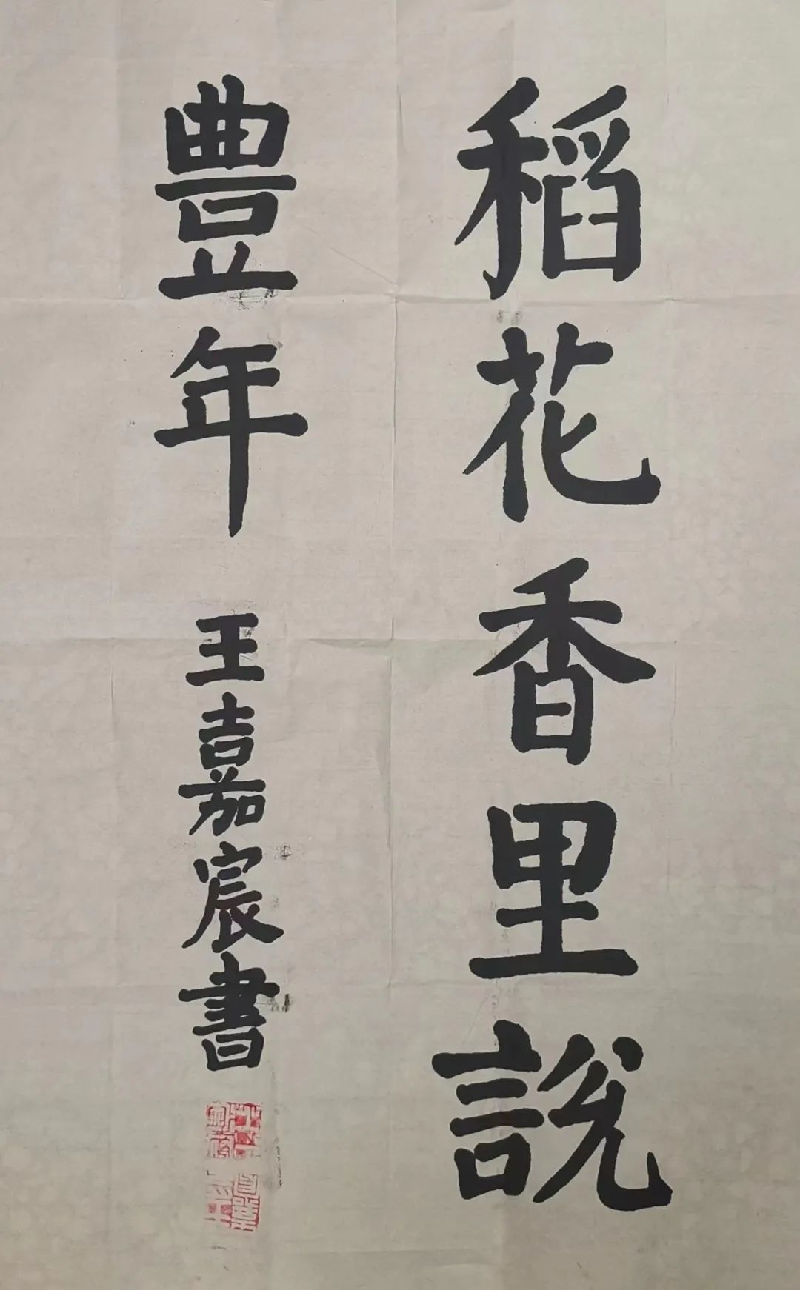 稻花香里説
豐年
王嘉宸書